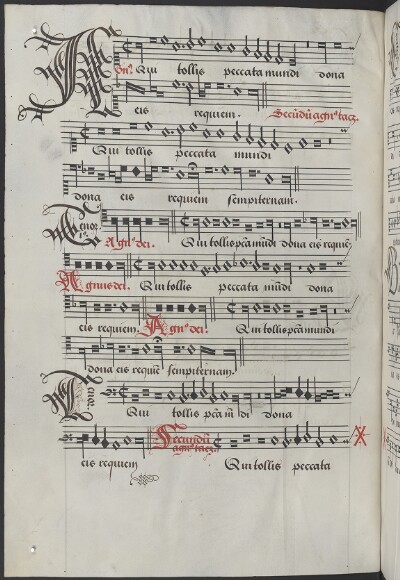 Agn⁹. Qui tollis peccata mundi dona
eis requiem. Secūdū agn⁹ tacz.
Qui tollis peccata mundi
dona eis requiem sempiternam.
Tenor. Agn⁹ dei. Qui tollis pcā mūdi dona eis requiē.
Agnus dei. Qui tollis peccata mūdi dona
eis requiem. Agn⁹ dei. Qui tollis pcā mundi
dona eis requiē sempiternam.
Tenor. Qui tollis pcā mūdi dona
eis requiem Secundū agn⁹ tacz. Qui tollis peccata